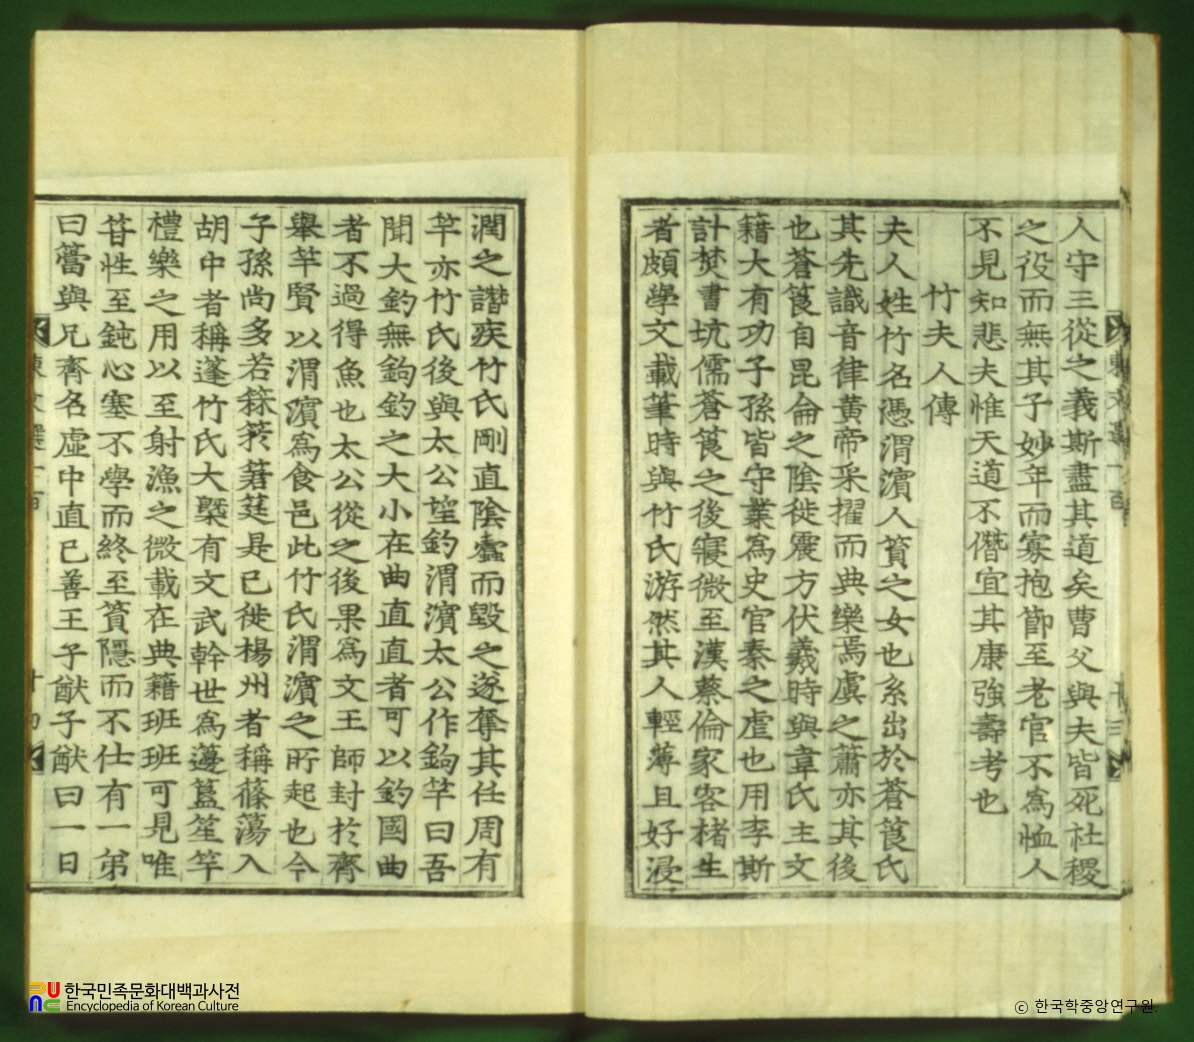 人守三從之義斯盡其道矣曹父與夫皆死社稷
之役而無其子妙年而寡抱節至老官不爲恤人
不見知悲夫惟天道不僭宜其康強壽考也
竹夫人傳
夫人姓竹名憑渭濱人篔之女也系出於蒼筤氏
其先識音律黃帝采擢而典樂焉虞之簫亦其後
也蒼筤自昆侖之陰徙震方伏羲時與韋氏主文
籍大有功子孫皆守業爲史官秦之虐也用李斯
計焚書坑儒蒼筤之後寢微至漢蔡倫家客楮生
者頗學文載筆時與竹氏游然其人輕薄且好浸
潤之譖疾竹氏剛直陰蠹而毀之遂奪其任周有
竿亦竹氏後與太公望釣渭濱太公作鉤竿曰吾
聞大釣無鉤釣之大小在曲直直者可以釣國曲
者不過得魚也太公從之後果爲文王師封於齊
舉竿賢以渭濱爲食邑此竹氏渭濱之所起也今
子孫尚多若箖箊䇞筳是已徙楊州者稱篠簜入
胡中者稱蓬竹氏大槩有文武幹世爲籩簋笙竽
禮樂之用以至射漁之微載在典籍班班可見唯
笞性至鈍心塞不學而終至篔隱而不仕有一弟
曰簹與兄齊名虛中直己善王子猷子猷曰一日
東文選一百
十三
十四
한국민족문화대백과사전
Encyclopedia of Korean Culture
ⓒ 한국학중앙연구원.